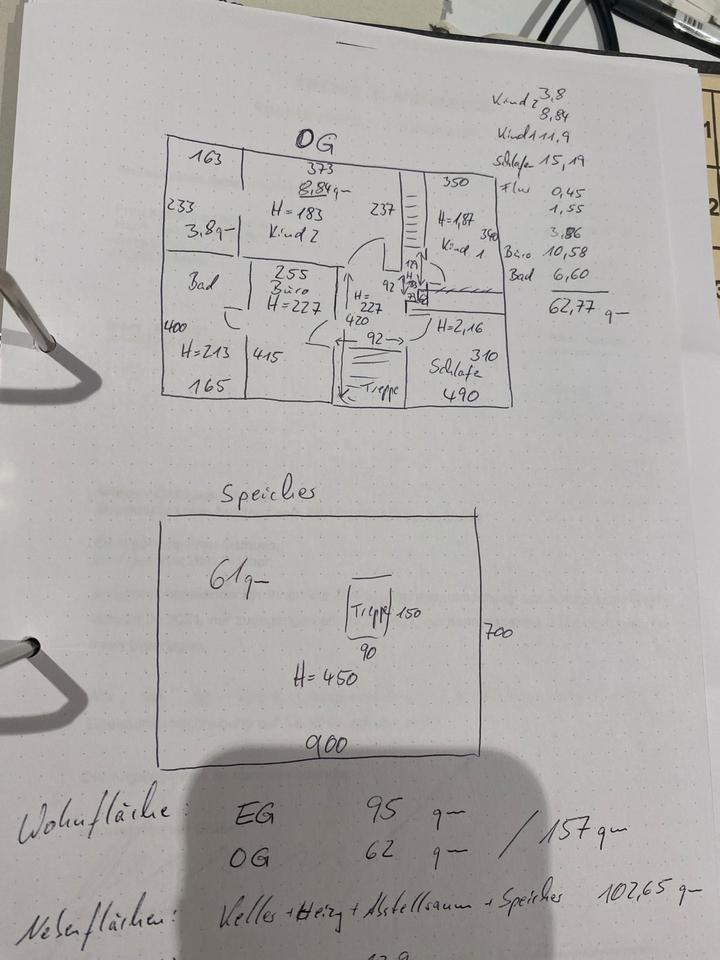 OG
Kind 2 3,8
8,84
Kind 1 11,9
Schlafe 15,19
Flur 0,45
1,55
3,86
Büro 10,58
Bad 6,60
62,77 qm
163
373
8,84 qm
350
233
H=183
237
H=1,87
3,8 qm
Kind 2
Kind 1
340
Bad
255
Büro
H=227
92
H=
227
420
400
92
H=2,16
H=213
415
310
Schlafe
165
Treppe
490
Speicher
61 qm
Treppe
150
90
700
H=450
900
Wohnfläche: EG 95 qm
OG 62 qm / 157 qm
Nebenflächen: Keller + Heizg + Abstellraum + Speicher 102,65 qm